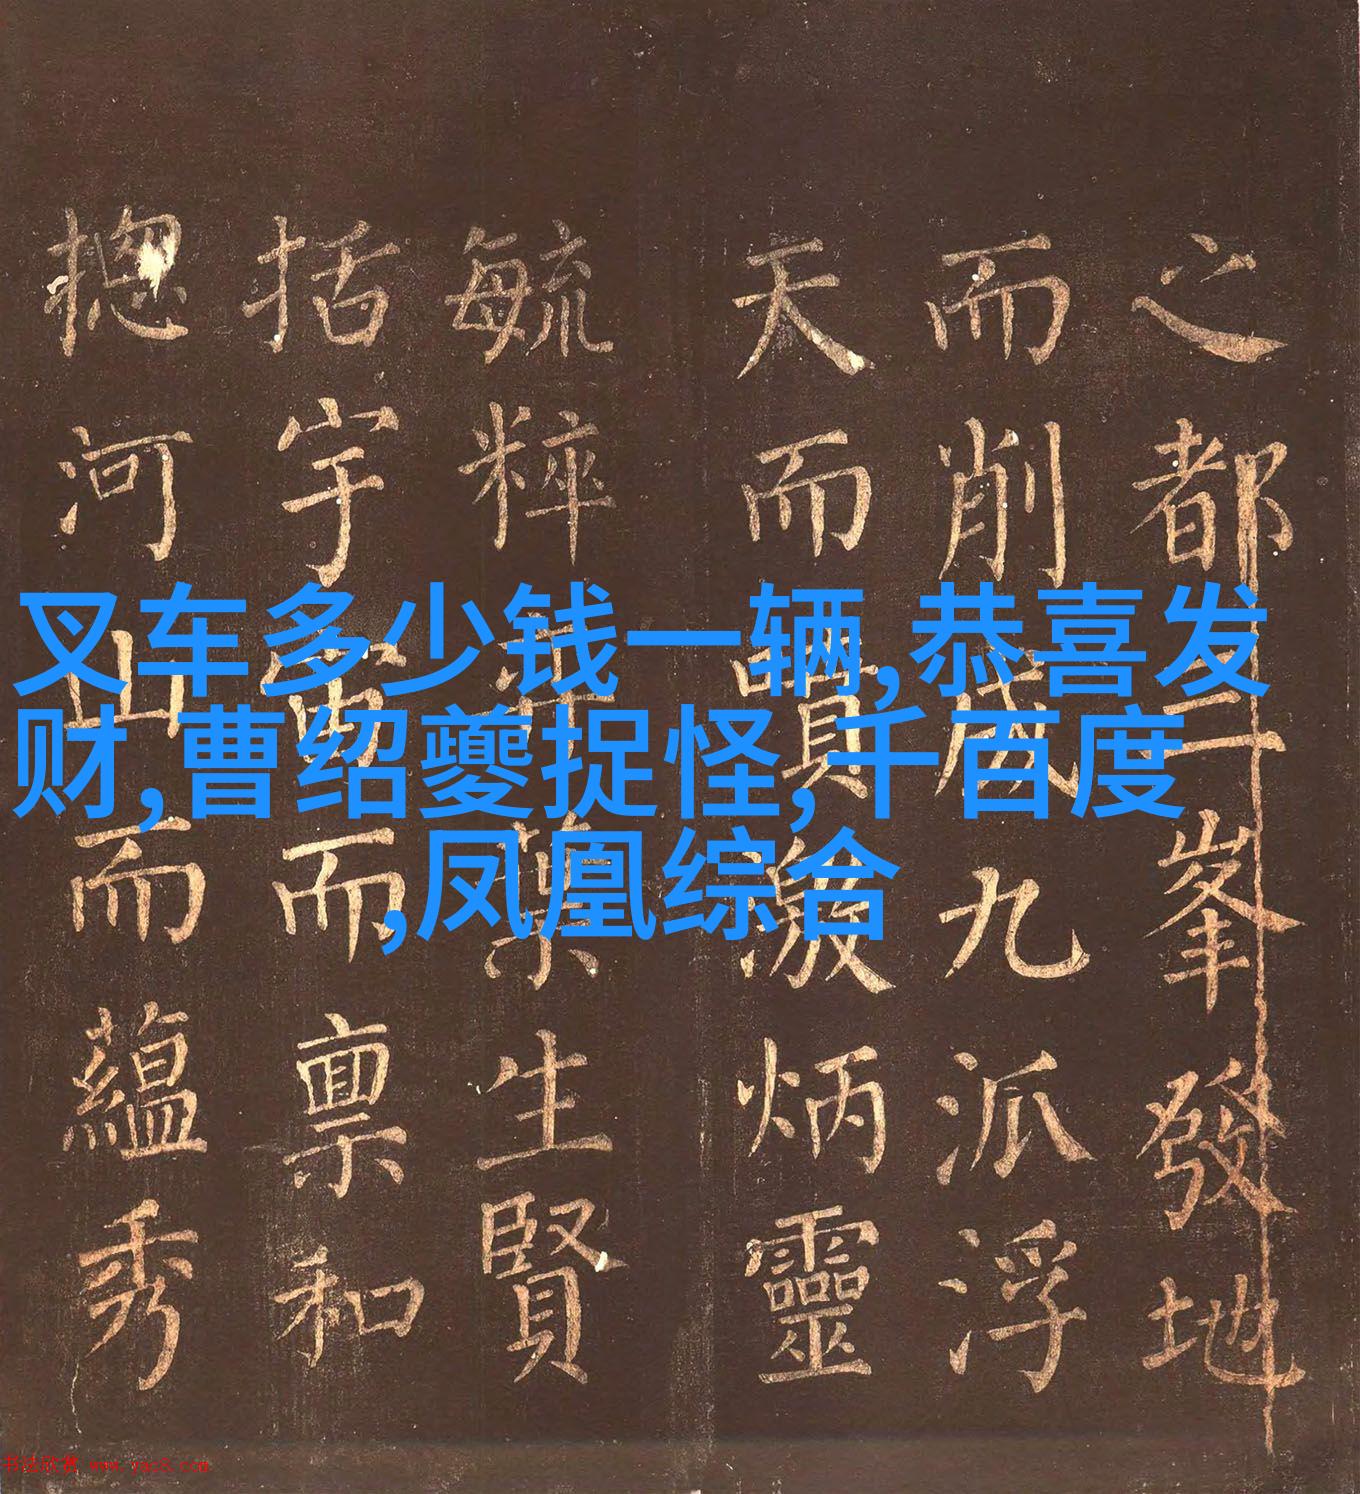 叉车多少钱一辆,恭喜发
财,曹绍夔捉怪,千百度
,凤凰综合
之都三峯發地
而削成九派浮
天而噴激炳靈
毓粹生賢
括宇宙而稟和
揔河山而蘊秀
书法欣赏 www.yac8.com